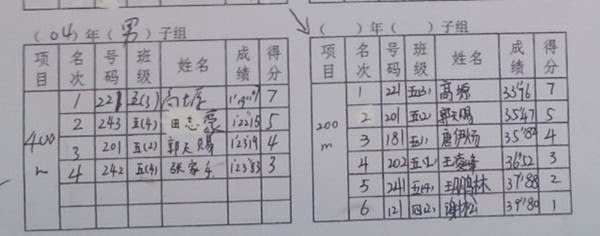 (04)年(男)子组
项目 名次 号码 班级 姓名 成绩 得分
400m 1 221 五(3) 7
2 243 五(4) 田志豪 1'22"15 5
3 201 五(2) 郭天赐 1'23"19 4
4 242 五(4) 张家 1'23"83 3
( )年( )子组
项目 名次 号码 班级 姓名 成绩 得分
200m 1 221 五(3) 高塬 33"96 7
2 201 五(2) 郭天赐 35"47 5
3 181 五(1) 唐伊扬 35"84 4
4 202 五(2) 36"52 3
5 241 五(4) 37"88 2
6 12 四(2) 39"80 1